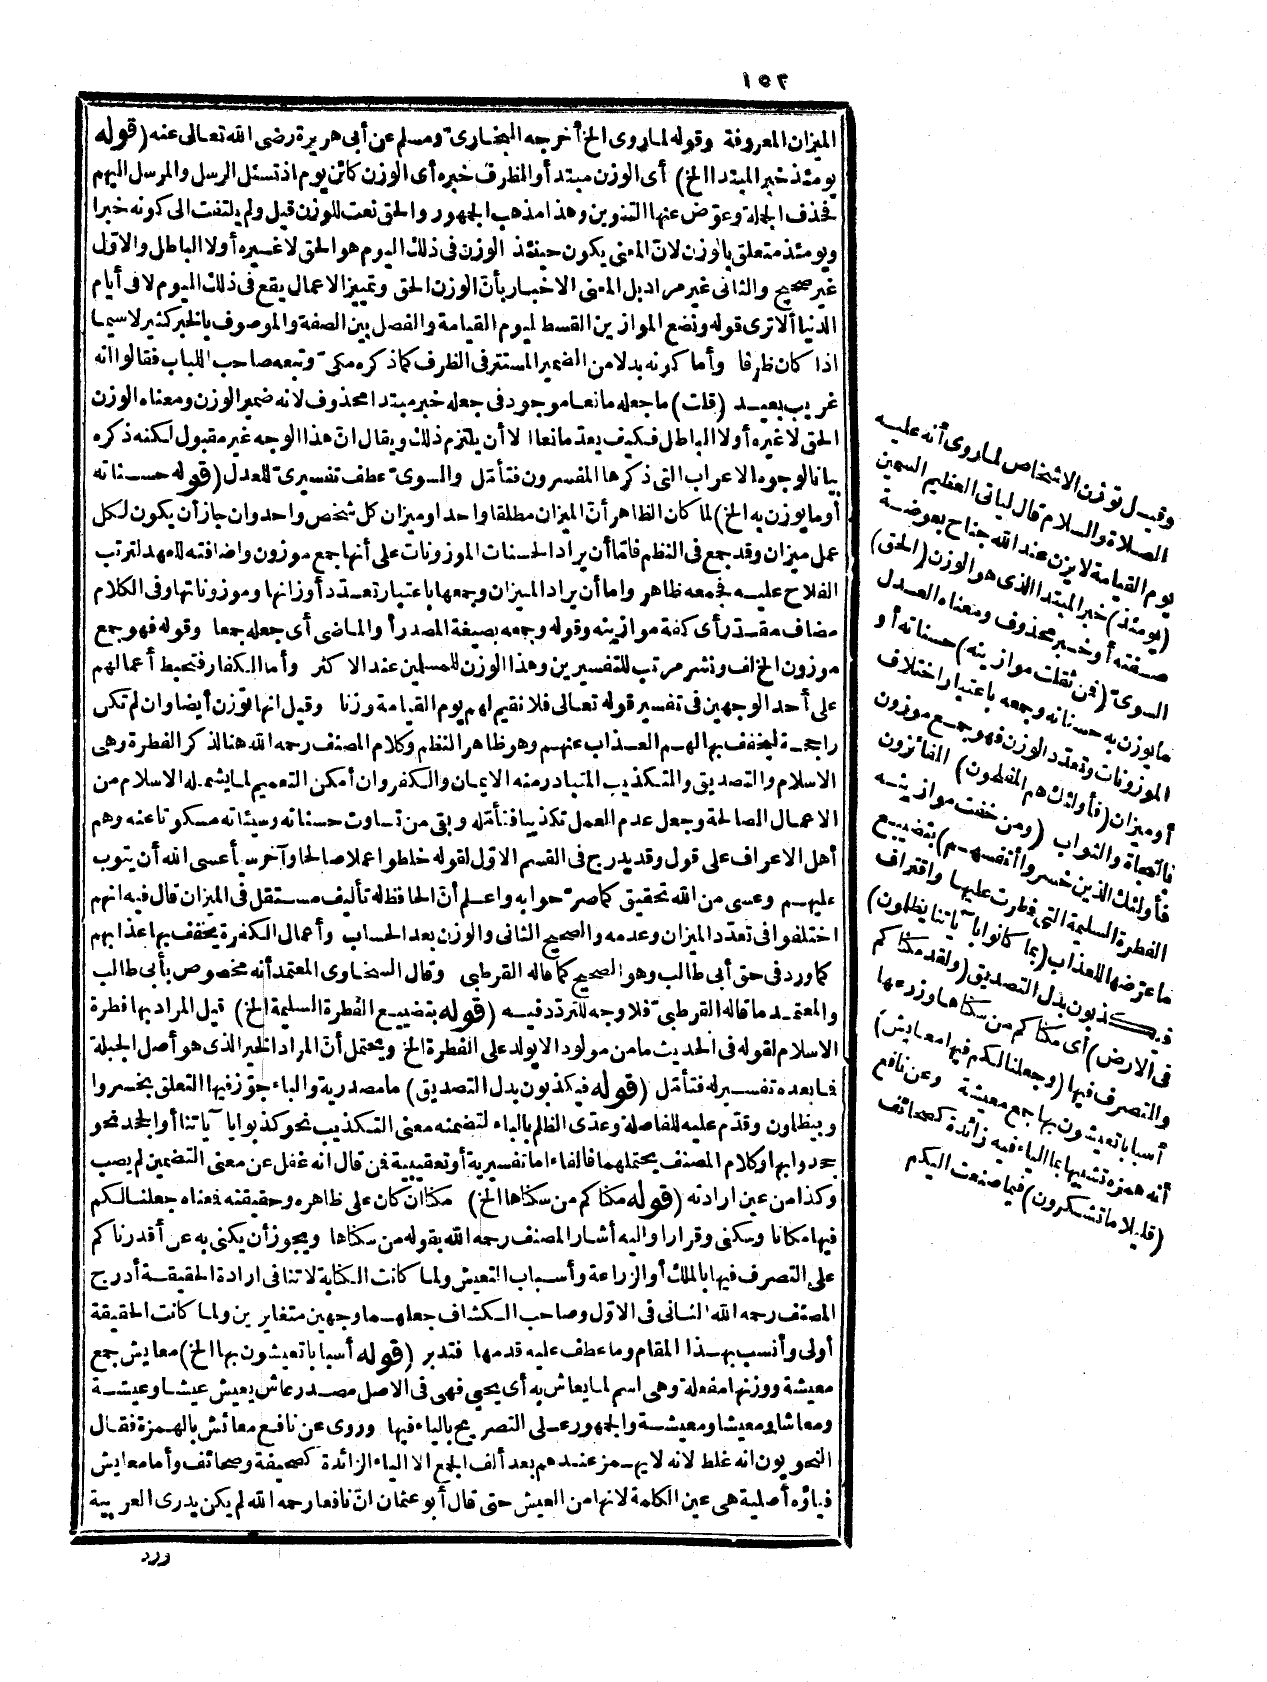 ١٥٢
الميزان المعروفة وقوله لما روى الخ أخرجه البخارى ومسلم عن أبى هريرة رضى الله تعالى عنه (قوله
يومئذ خبر المبتدا الخ) أى الوزن مبتدأ والظرف خبره أى الوزن كائن يوم اذ تسئل الرسل والمرسل اليهم
فحذف الجملة وعوّض عنها التنوين وهذا مذهب الجمهور والحق نعت للوزن قيل ولم يلتفت الى كونه خبرا
ويومئذ متعلق بالوزن لانّ المعنى يكون حينئذ الوزن فى ذلك اليوم هو الحق لا غيره أو لا الباطل والاوّل
غير صحيح والثانى غير مراد بل المعنى الاخبار بأنّ الوزن الحق وتمييز الاعمال يقع فى ذلك اليوم لا فى أيام
الدنيا ألا ترى قوله ونضع الموازين القسط ليوم القيامة والفصل بين الصفة والموصوف بالخبر كثير لا سيما
اذا كان ظرفا وأما كونه بدلا من الضمير المستتر فى الظرف كما ذكره مكىّ وتبعه صاحب اللباب فقالوا انه
غريب بعيد (قلت) ما جعله مانعا موجود فى جعله خبر مبتدا محذوف لانه ضمير الوزن ومعناه الوزن
الحق لا غيره أو لا الباطل فكيف يعدّ مانعا الا أن يلتزم ذلك ويقال انّ هذا الوجه غير مقبول لكنه ذكره
بيانا لوجوه الاعراب التى ذكرها المفسرون فتأمّل والسوىّ عطف تفسيرىّ للعدل (قوله حسناته
أو ما يوزن به الخ) لما كان الظاهر أنّ الميزان مطلقا واحد او ميزان كل شخص واحد وان جاز أن يكون لكل
عمل ميزان وقد جمع فى النظم فامّا أن يراد الحسنات الموزونات على أنها جمع موزون واضافته للعهد لترتب
الفلاح عليه فجمعه ظاهر واما أن يراد الميزان وجمعها باعتبار تعدّد أوزانها وموزوناتها وفى الكلام
مضاف مقدر أى كفة موازينه وقوله وجمعه بصيغة المصدر أو الماضى أى جعله جمعا وقوله فهو جمع
موزون الخ لف ونشر مرتب للتفسيرين وهذا الوزن للمسلمين عند الاكثر وأما الكفار فتحبط أعمالهم
على أحد الوجهين فى تفسير قوله تعالى فلا نقيم لهم يوم القيامة وزنا وقيل انها توزن أيضا وان لم تكن
راجحة ليخفف بها لهم العذاب عنهم وهو ظاهر النظم وكلام المصنف رحمه الله هنا لذكر الفطرة وهى
الاسلام والتصديق والتكذيب المتبادر منه الايمان والكفر وان أمكن التعميم لما يشمله الاسلام من
الاعمال الصالحة وجعل عدم العمل تكذيبا فتأمّله وبقى من تساوت حسناته وسيئاته مسكوتا عنه وهم
أهل الاعراف على قول وقد يدرج فى القسم الاوّل لقوله خلطوا عملا صالحا وآخر سيأ عسى الله أن يتوب
عليهم وعسى من الله تحقيق كما صرّحوا به واعلم أنّ الحافظ له تأليف مستقل فى الميزان قال فيه انهم
اختلفوا فى تعدّد الميزان وعدمه والصحيح الثانى والوزن بعد الحساب وأعمال الكفرة يخفف بها عذابهم
كما ورد فى حق أبى طالب وهو الصحيح كما قاله القرطبى وقال السخاوى المعتمد أنه مخصوص بأبى طالب
والمعتمد ما قاله القرطبىّ فلا وجه للتردّد فيه (قوله بتضييع الفطرة السليمة الخ) قيل المراد بها فطرة
الاسلام لقوله فى الحديث ما من مولود الا يولد على الفطرة الخ ويحتمل أنّ المراد الخير الذى هو أصل الجبلة
فما بعده تفسير له فتأمّل (قوله فيكذبون بدل التصديق) ما مصدرية والباء جوّز فيها التعلق بخسروا
وبيظلمون وقدّم عليه للفاصلة وعدّى الظلم بالباء لتضمنه معنى التكذيب نحو كذبوا بآياتنا أو الجحد نحو
جحدوا بها وكلام المصنف يحتملهما فالفاء اما تفسيرية أو تعقيبية فمن قال انه غفل عن معنى التضمين لم يصب
وكذا من عين ارادته (قوله مكناكم من سكناها الخ) مكنا ان كان على ظاهره وحقيقته فمعناه جعلنا لكم
فيها مكانا وسكنى وقرارا واليه أشار المصنف رحمه الله بقوله من سكناها ويجوز أن يكنى به عن أقدرناكم
على التصرف فيها بالملك أو الزراعة وأسباب التعيش ولما كانت الكناية لا تنافى ارادة الحقيقة أدرج
المصنف رحمه الله الثانى فى الاوّل وصاحب الكشاف جعلهما وجهين متغايرين ولما كانت الحقيقة
أولى وأنسب بهذا المقام وما عطف عليه قدمها فتدبر (قوله أسبابا تعيشون بها الخ) معايش جمع
معيشة ووزنها مفعلة وهى اسم لما يعاش به أى يحيى فهى فى الاصل مصدر عاش يعيش عيشا وعيشة
ومعاشا ومعيشا ومعيشة والجمهور على التصريح بالياء فيها وروى عن نافع معائش بالهمزة فقال
النحويون انه غلط لانه لا يهمز عندهم بعد ألف الجمع الا الياء الزائدة كصحيفة وصحائف وأما معايش
فياؤه أصلية هى عين الكلمة لانها من العيش حتى قال أبو عثمان انّ نافعا رحمه الله لم يكن يدرى العربية
ورد
وقيل توزن الاشخاص لما روى أنه عليه
الصلاة والسلام قال ليأتى العظيم السمين
يوم القيامة لا يزن عند الله جناح بعوضة
(يومئذ) خبر المبتدا الذى هو الوزن (الحق)
صفته أو خبر محذوف ومعناه العدل
السوىّ (فمن ثقلت موازينه) حسناته أو
ما يوزن به حسناته وجمعه باعتبار اختلاف
الموزونات وتعدّد الوزن فهو جمع موزون
أو ميزان (فأولئك هم المفلحون) الفائزون
بالنجاة والثواب (ومن خفت موازينه
فأولئك الذين خسروا أنفسهم) بتضييع
الفطرة السليمة التى فطرت عليها واقتراف
ما عرضها للعذاب (بما كانوا بآياتنا يظلمون)
فيكذبون بدل التصديق (ولقد مكناكم
فى الارض) أى مكناكم من سكناها وزرعها
والتصرف فيها (وجعلنا لكم فيها معايش)
أسبابا تعيشون بها جمع معيشة وعن نافع
أنه همزه تشبيها بما الياء فيه زائدة كصحائف
(قليلا ما تشكرون) فيما صنعت اليكم